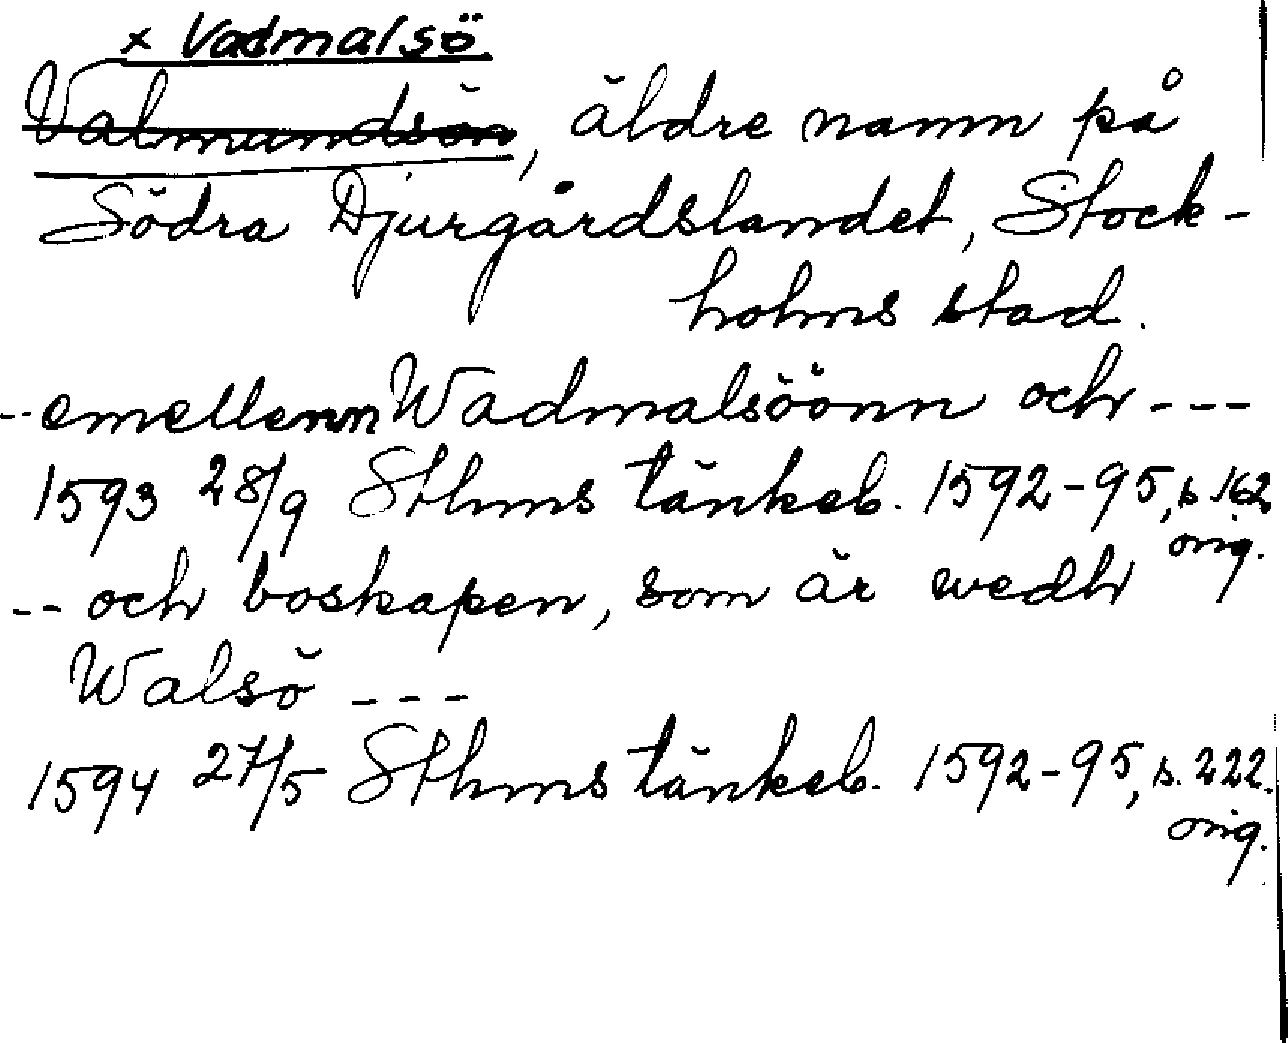 x Vadmalsö
Valmundsön, äldre namn på
Södra Djurgårdslandet, Stock-
holms stad.
-- emellenn Wadmalsöönn och ---
1593 28/9 Sthms tänkeb. 1592-95, s. 162
orig.
-- och boskapen, som är wedh
Walsö ---
1594 27/5 Sthms tänkeb. 1592-95, s. 222.
orig.